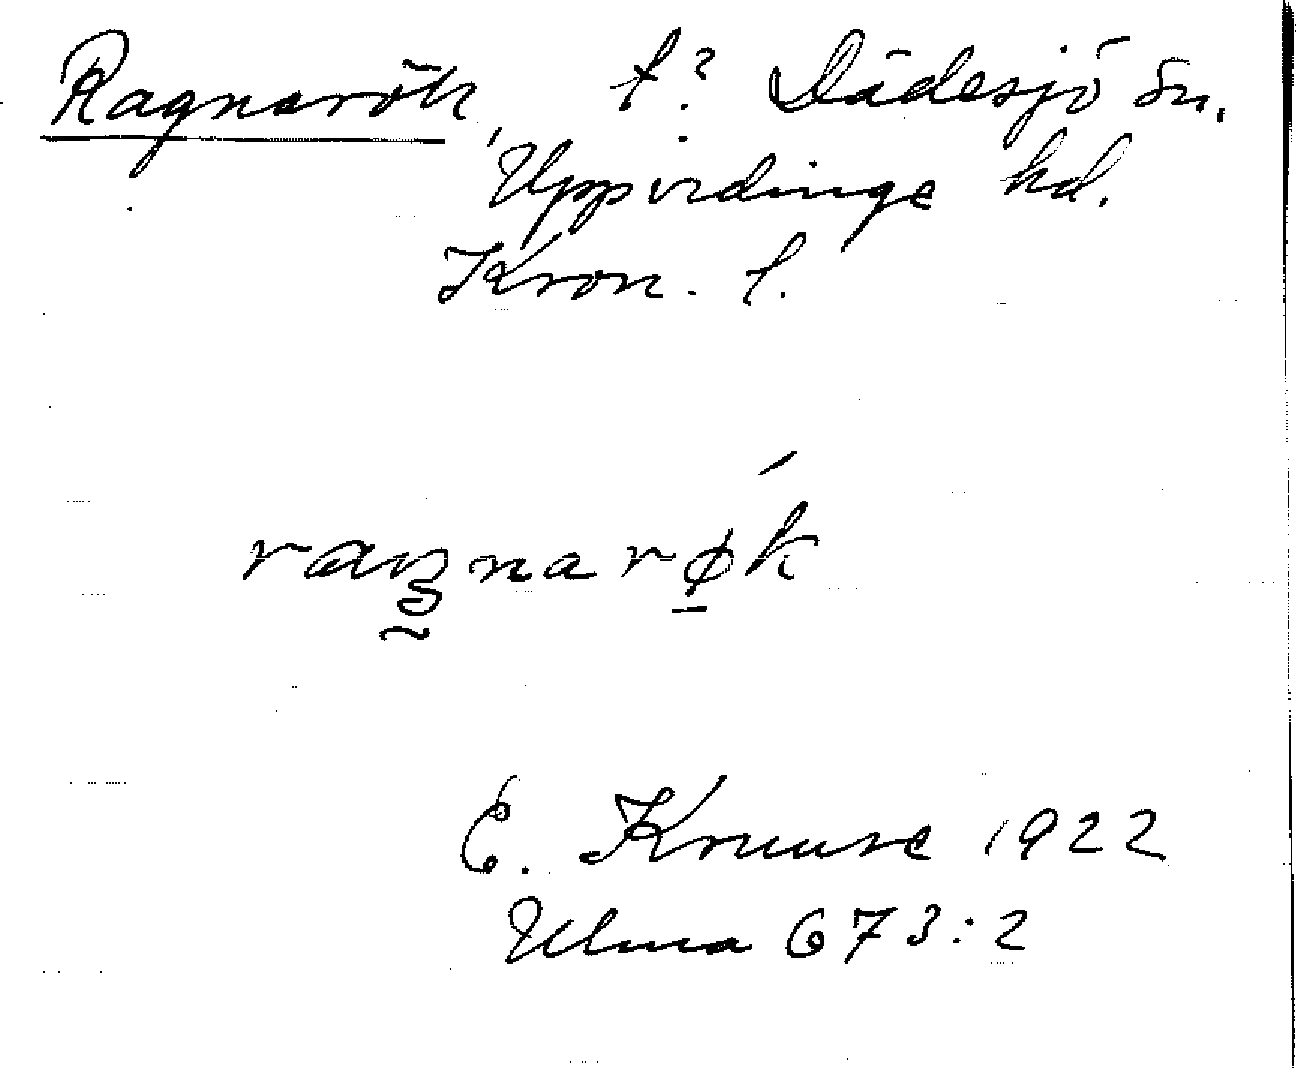 Ragnarök, t? Dädesjö sn.
Uppvidinge hd.
Kron. l.
raŋnarø̠k
E. Kruuse 1922
Ulma 673:2